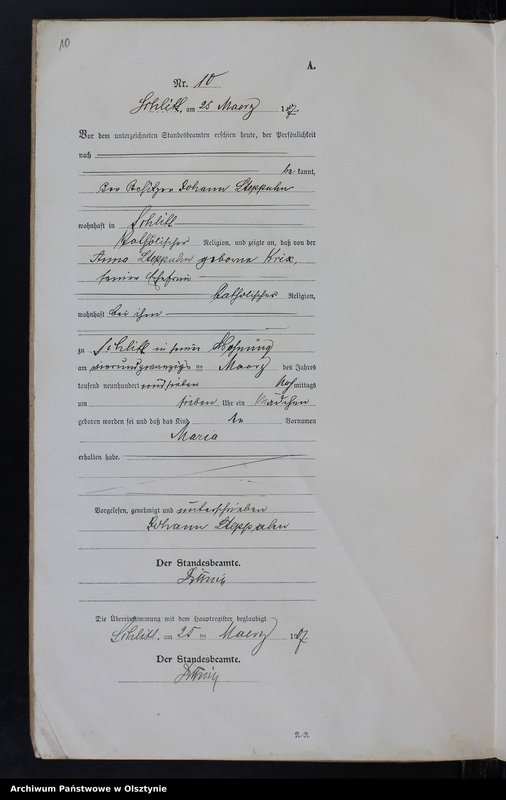 10
A.
Nr. 10
Schlitt, am 25 Maerz 1907
Vor dem unterzeichneten Standesbeamten erschien heute, der Persönlichkeit
nach
be kannt,
der Besitzer Johann Steppuhn
wohnhaft in Schlitt
katholischer Religion, und zeigte an, daß von der
Anna Steppuhn geborne Krix,
seiner Ehefrau
katholischer Religion,
wohnhaft bei ihm
zu Schlitt in seiner Wohnung
am vierundzwanzigsten Maerz des Jahres
tausend neunhundert und sieben Nachmittags
um sieben Uhr ein Mädchen
geboren worden sei und daß das Kind den Vornamen
Maria
erhalten habe.
Vorgelesen, genehmigt und unterschrieben
Johann Steppuhn
Der Standesbeamte.
Die Übereinstimmung mit dem Hauptregister beglaubigt
Schlitt, am 25 ten Maerz 1907
Der Standesbeamte.
Archiwum Państwowe w Olsztynie